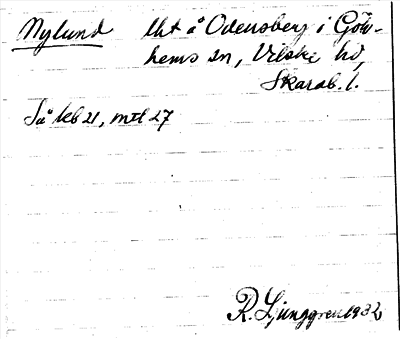 Nylund lht å Odensberg i Göte-
hems sn, Vilske hd,
Skarab. l.
Så kb 21, mtl 27
R. Ljunggren 1932